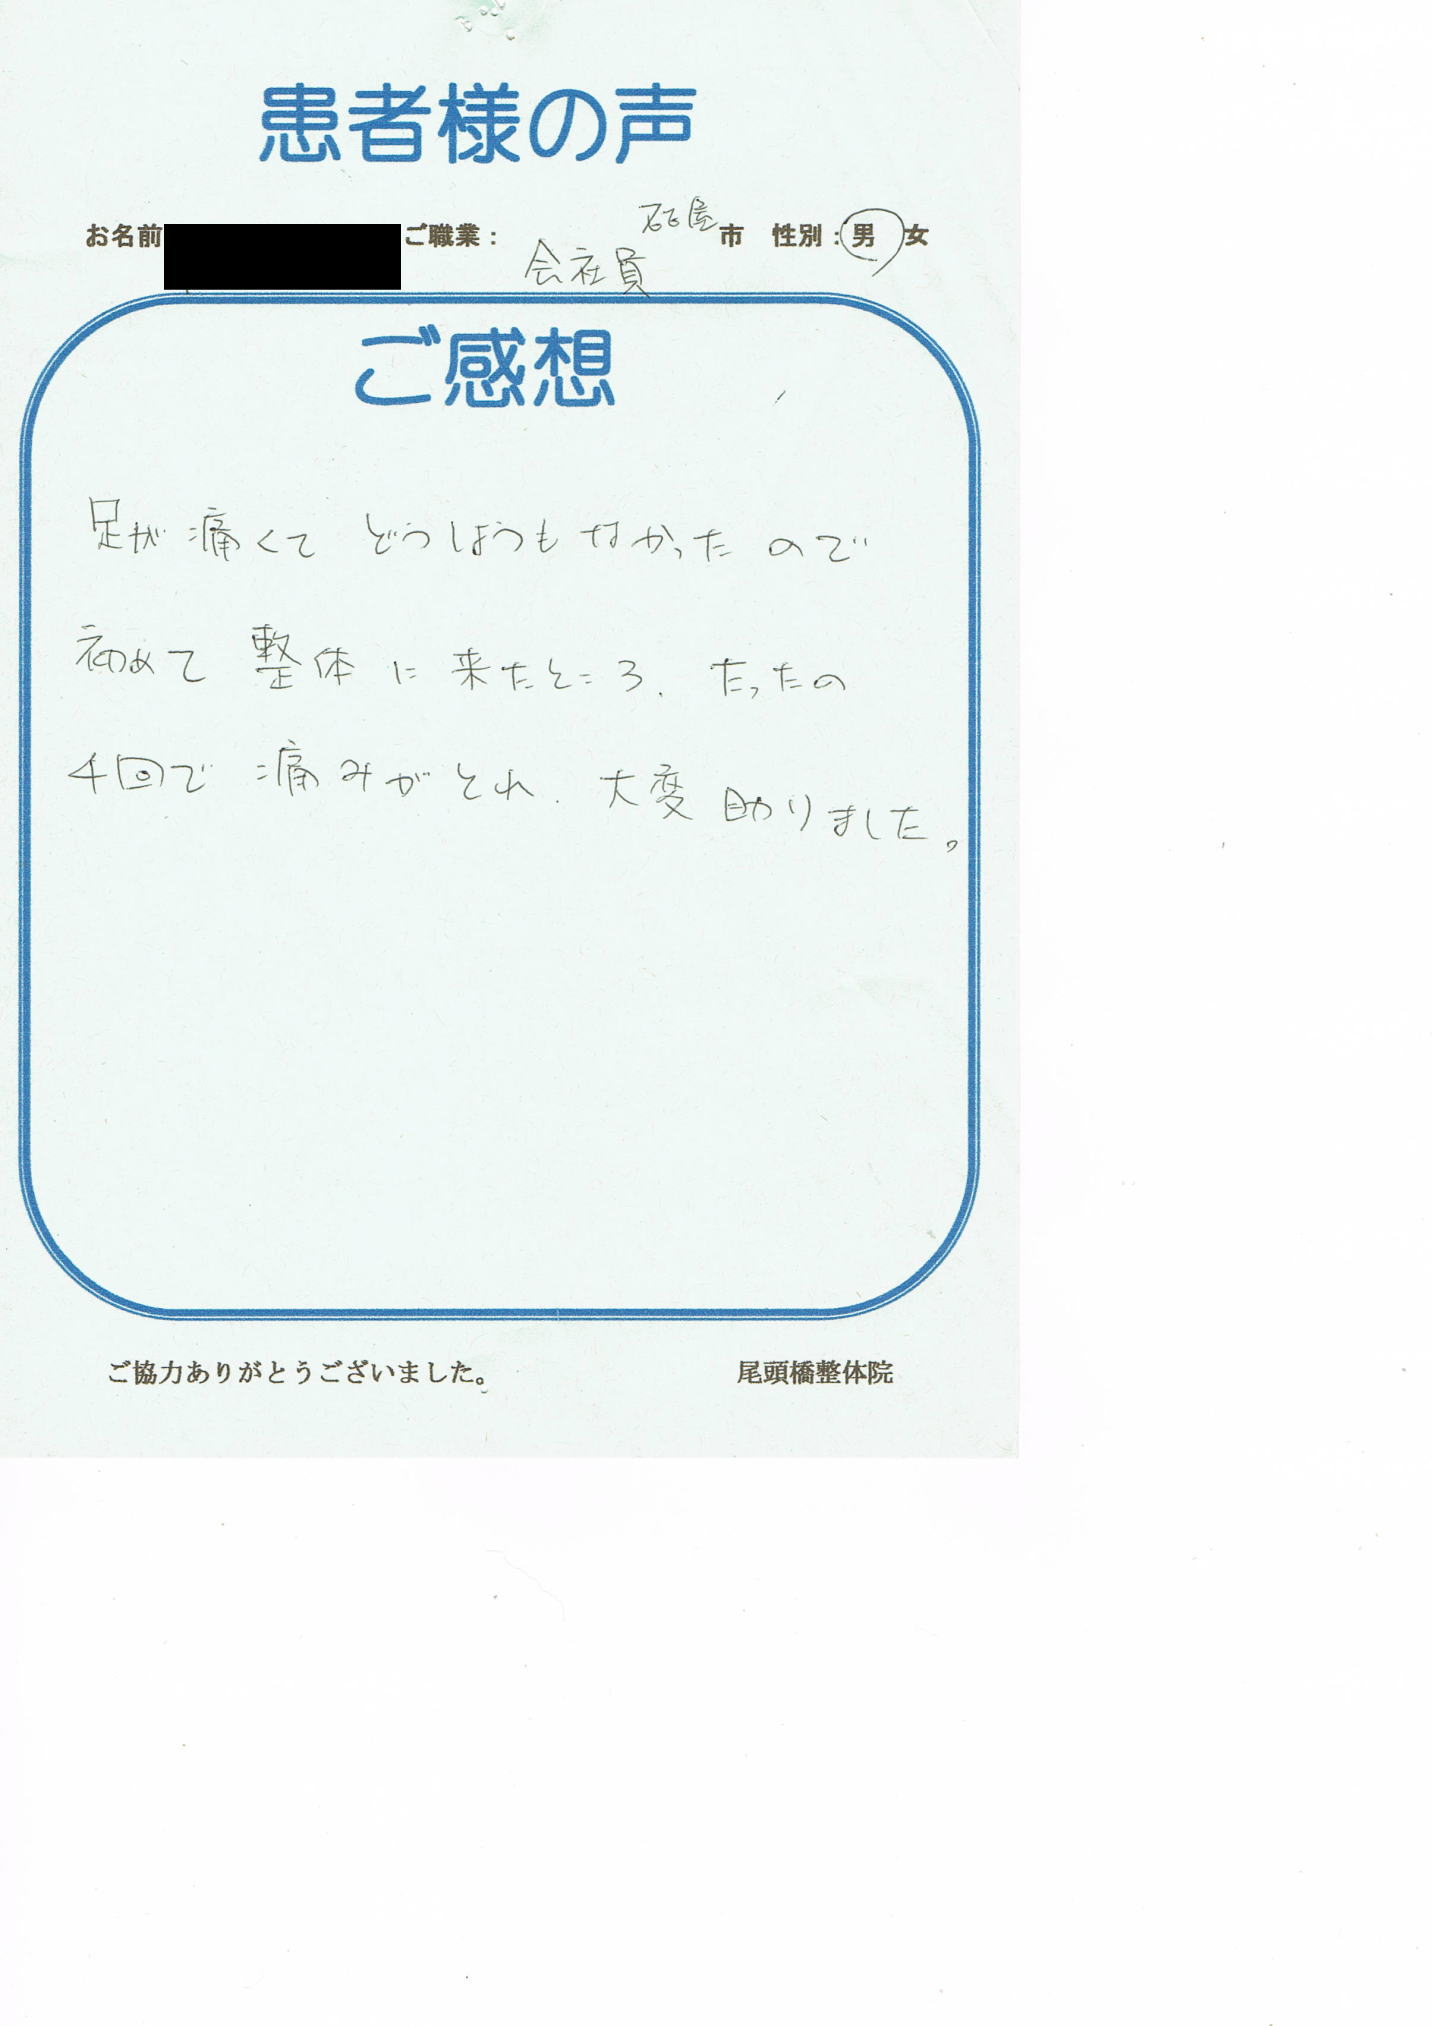 患者様の声
お名前 ご職業： 会社員 名古屋市 性別：男 女
ご感想
足が痛くてどうしようもなかったので
初めて整体に来たところ、たったの
4回で痛みがとれ、大変助りました。
ご協力ありがとうございました。 尾頭橋整体院